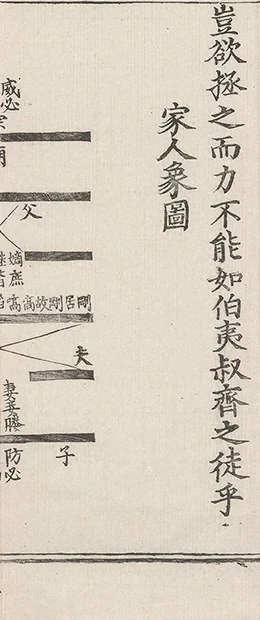 豈欲拯之而力不能如伯夷叔齊之徒乎
家人象圖
父
夫
子
剛居剛故高
嫡庶
妻妾媵
防必
威必